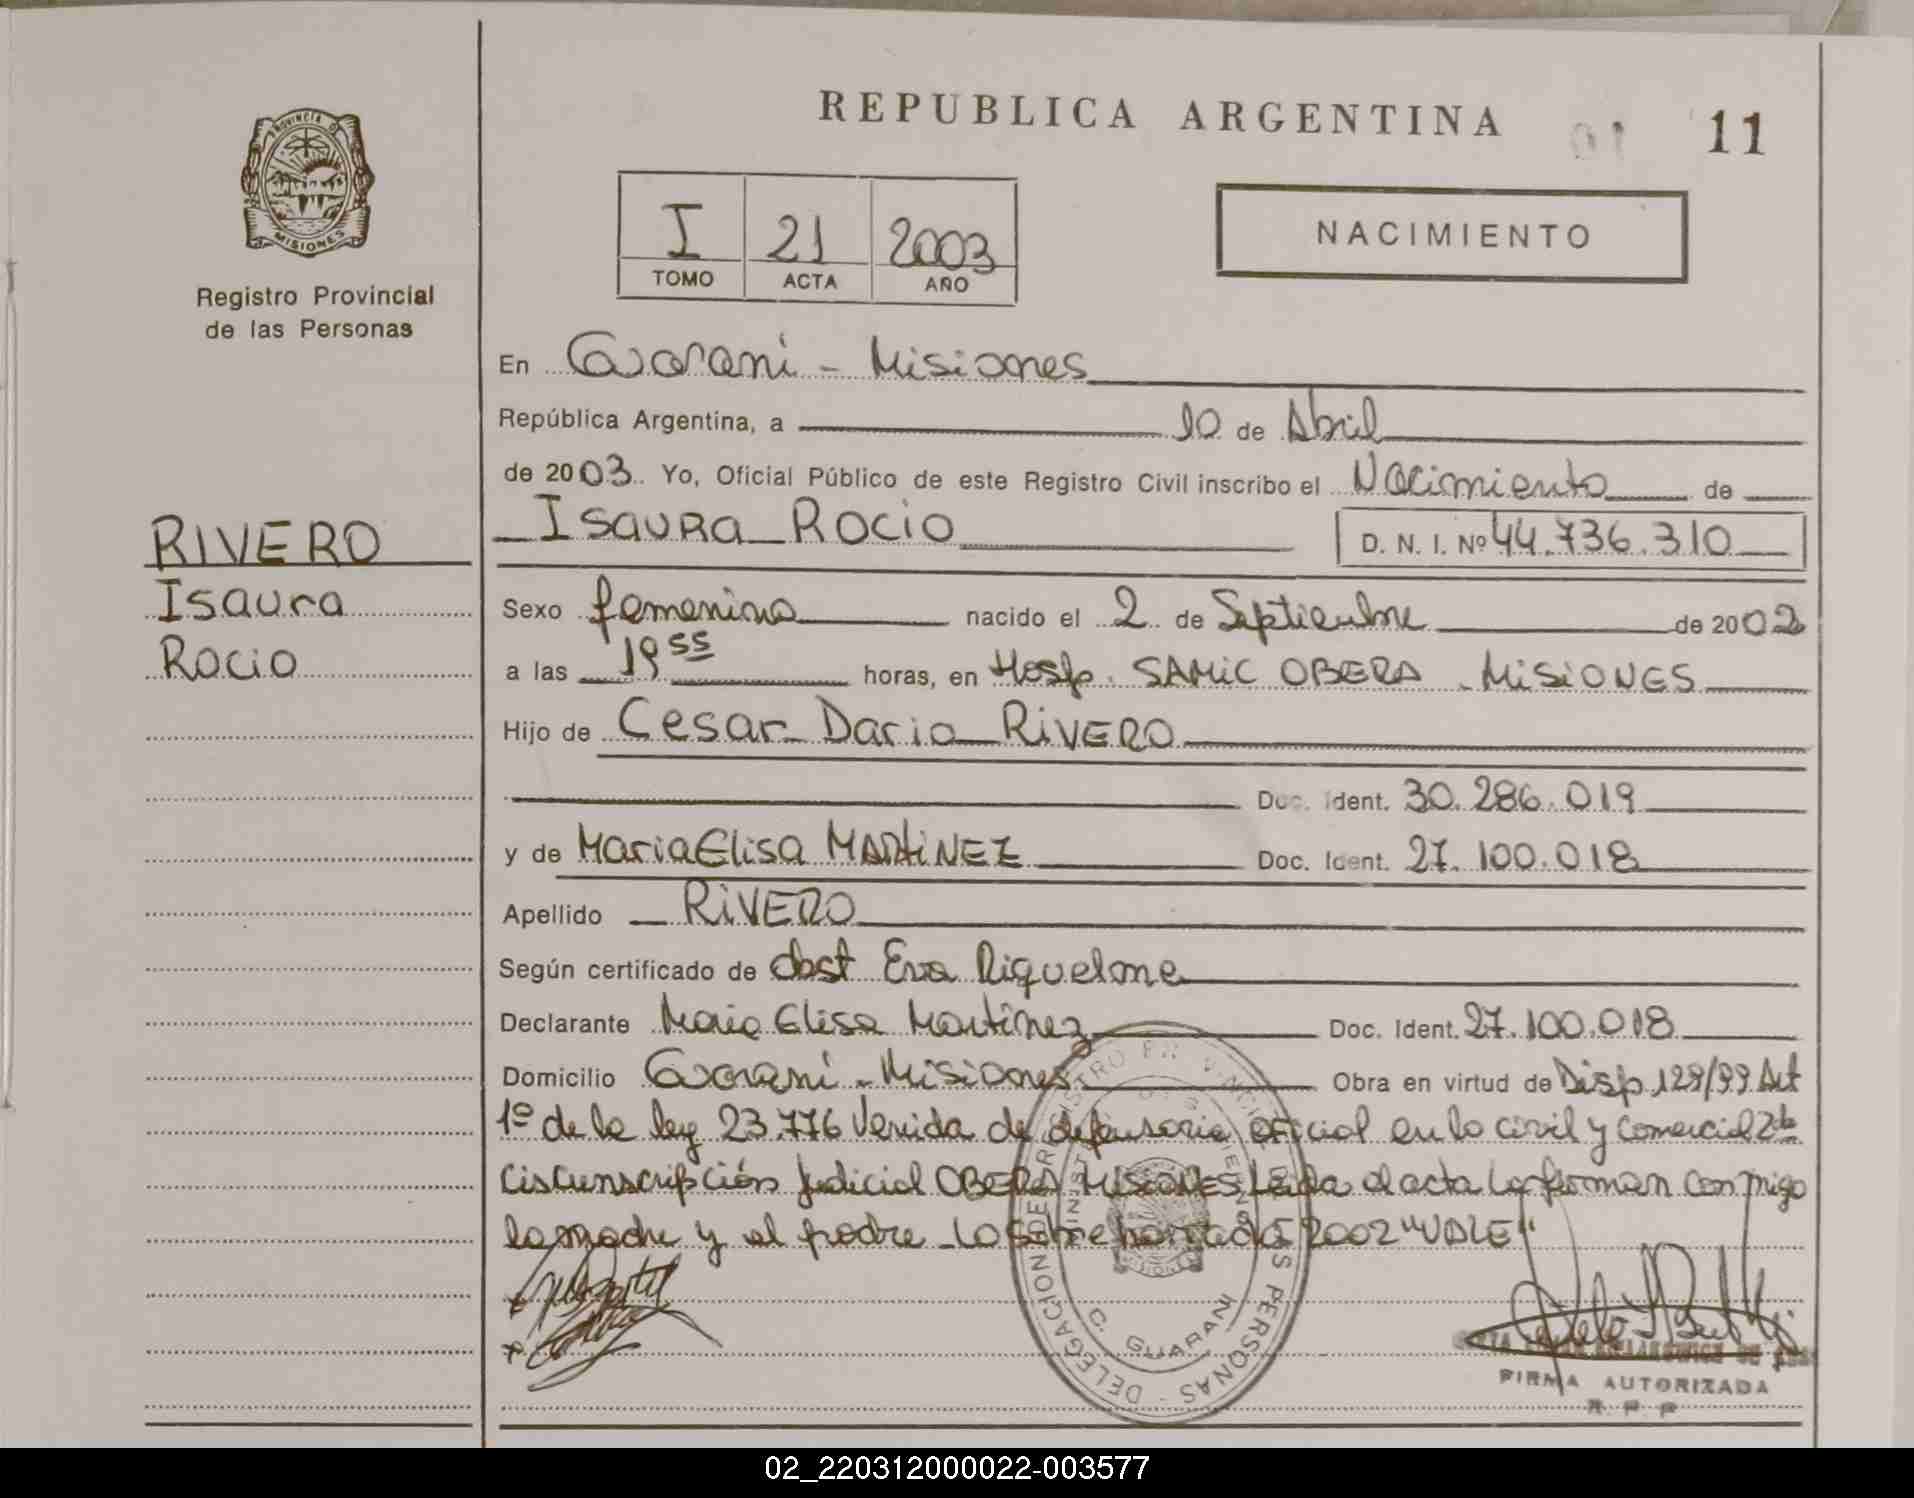 REPUBLICA ARGENTINA
01 11
PROVINCIA DE
MISIONES
Registro Provincial
de las Personas
I 21 2003
TOMO ACTA AÑO
NACIMIENTO
En Guarani - Misiones
República Argentina, a 10 de Abril
de 2003. Yo, Oficial Público de este Registro Civil inscribo el Nacimiento de
Isaura Rocio D. N. I. Nº 44.736.310
RIVERO
Isaura
Rocio
Sexo femenino nacido el 2 de Septiembre de 2002
a las 19 55 horas, en Hosp. SAMIC OBERA - MISIONES
Hijo de Cesar Dario RIVERO
Doc. Ident. 30.286.019
y de Maria Elisa MARTINEZ Doc. Ident. 27.100.018
Apellido RIVERO
Según certificado de obst Eva Riquelme
Declarante Maria Elisa Martinez Doc. Ident. 27.100.018
Domicilio Guarani - Misiones Obra en virtud de Disp. 129/99 Art
1º de la ley 23.776 Venida de defensoria oficial en lo civil y comercial 2da
Circunscripción Judicial OBERA MISIONES Leida el acta la firman conmigo
la madre y el padre - Lo sobreborrado 2002 "VALE"
DELEGACION
PERSONAS
C. GUARANI
FIRMA AUTORIZADA
R. P. P.
02_220312000022-003577